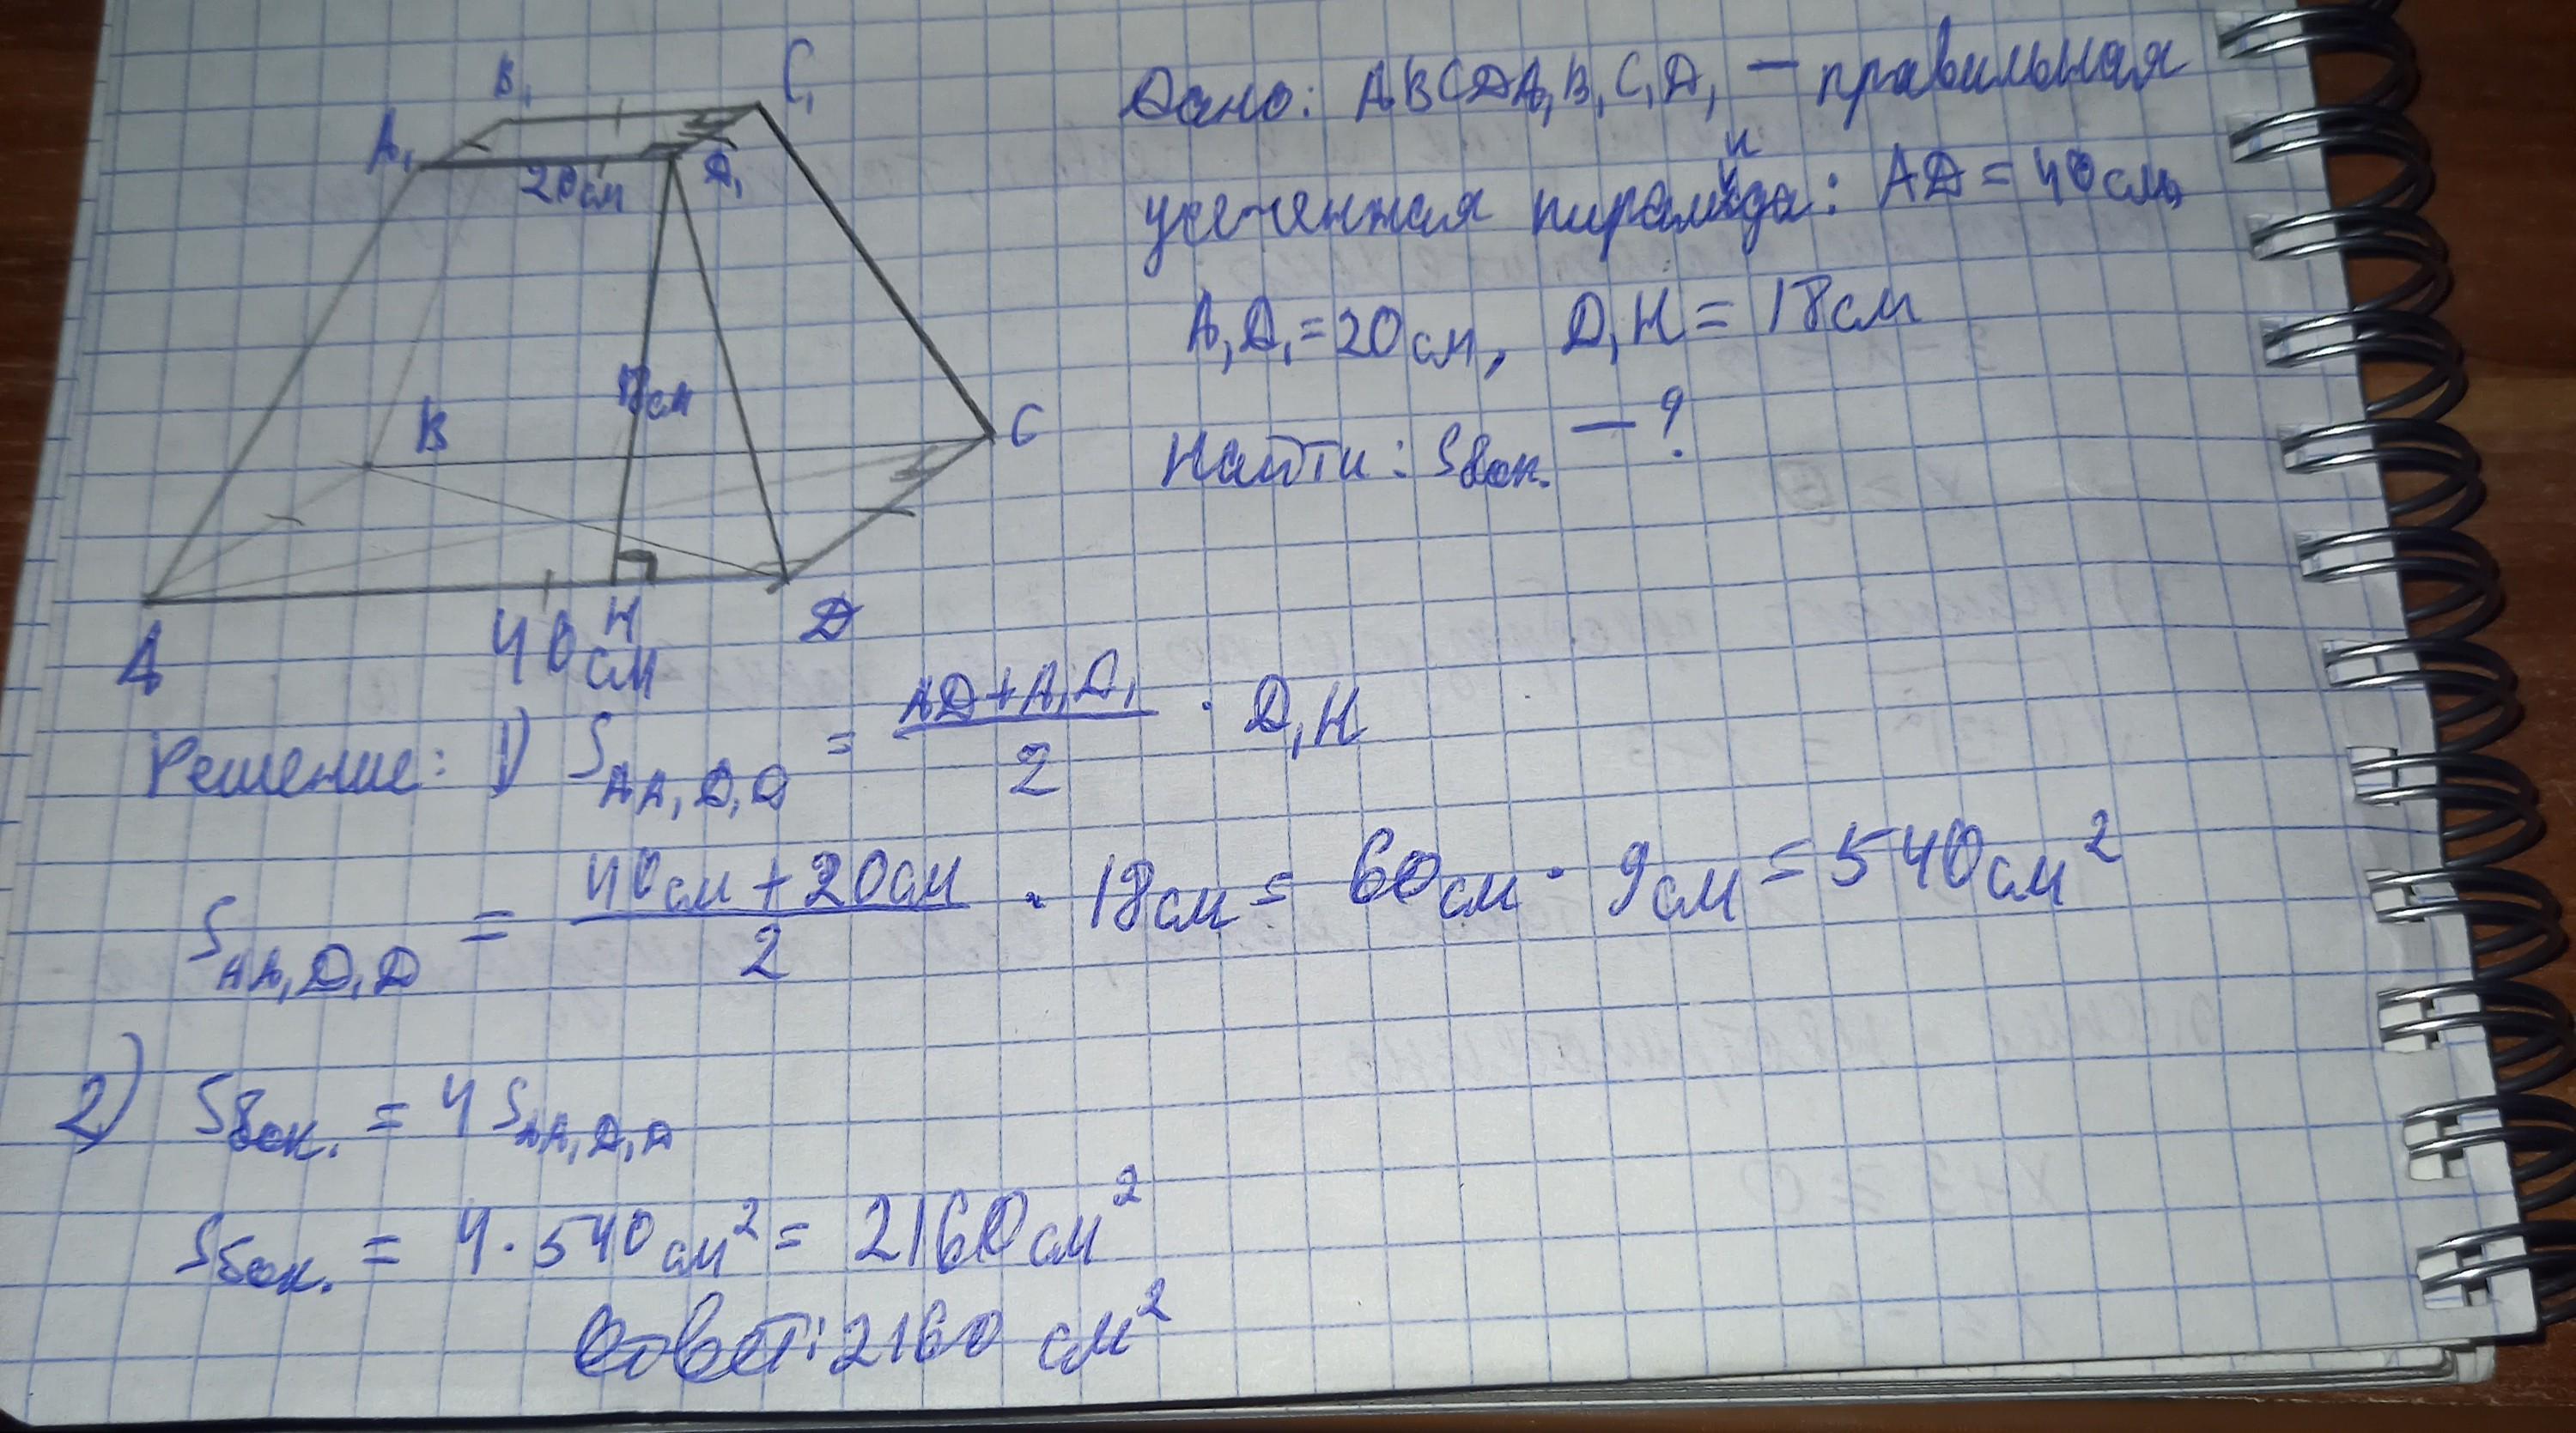 B₁ C₁
A₁ 20см D₁
Дано: ABCDA₁B₁C₁D₁ – правильная
усеченная пирамида: AD = 40 см,
A₁D₁ = 20 см, D₁H = 18 см
Найти: Sбок. – ?
18см
B C
A H D
40 см
Решение: 1) S_AA₁D₁D = (AD + A₁D₁)/2 · D₁H
S_AA₁D₁D = (40см + 20см)/2 · 18см = 60см · 9см = 540см²
2) Sбок. = 4S_AA₁D₁D
Sбок. = 4 · 540см² = 2160см²
Ответ: 2160 см²